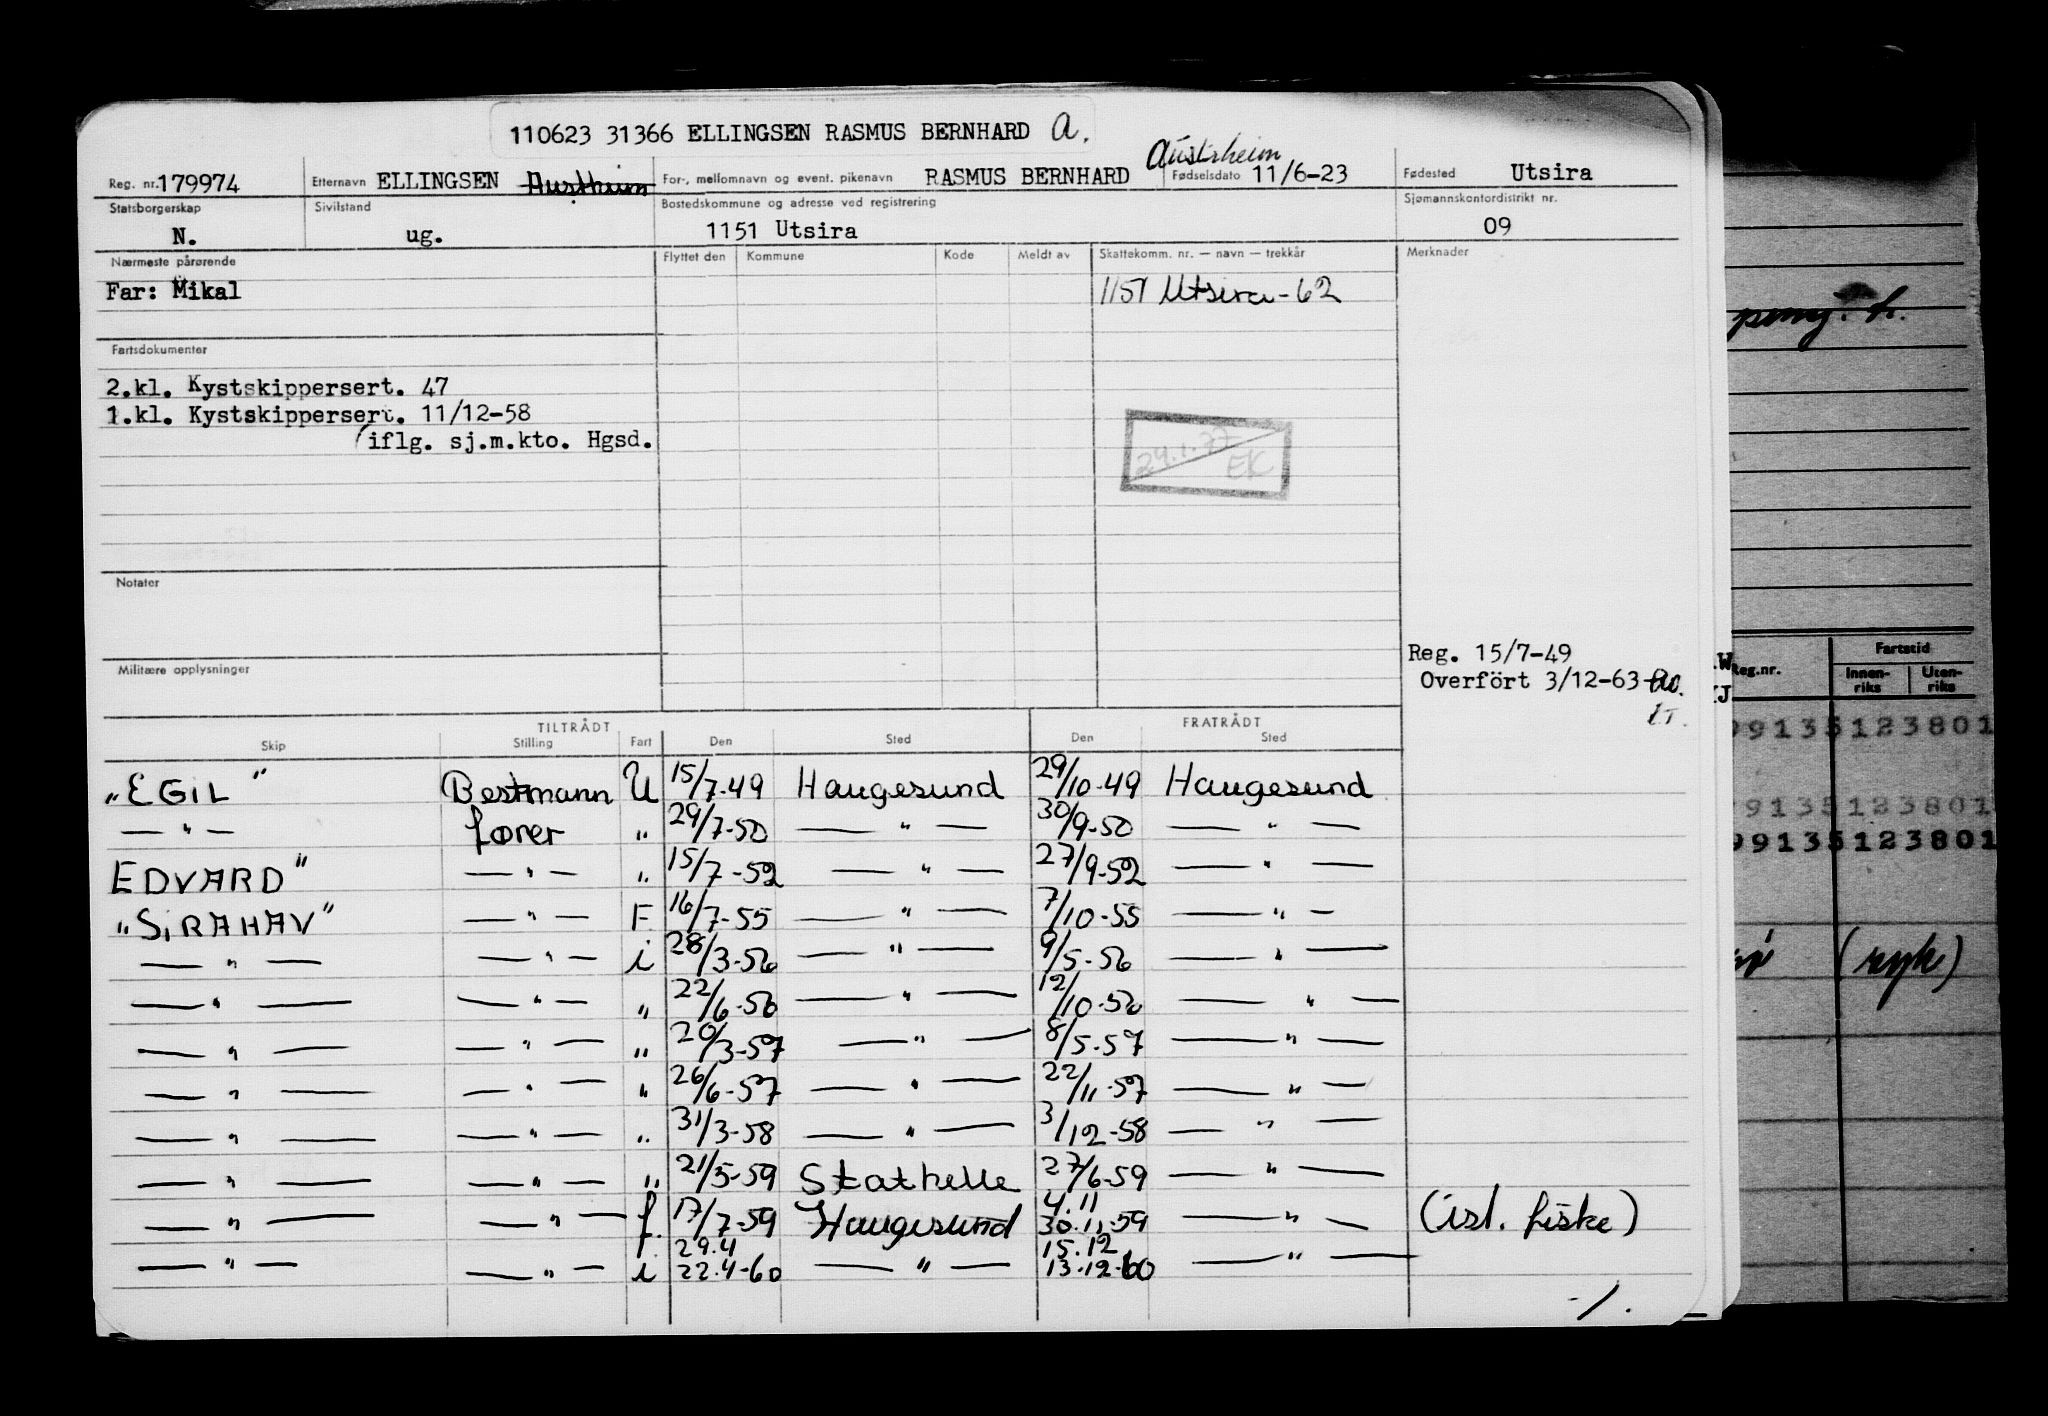 110623 31366 ELLINGSEN RASMUS BERNHARD A.
Reg. nr. 179974 Etternavn ELLINGSEN Austrheim For-, mellomnavn og event. pikenavn RASMUS BERNHARD Austrheim Fødselsdato 11/6-23 Fødested Utsira
Statsborgerskap Sivilstand Bostedskommune og adresse ved registrering Sjømannskontordistrikt nr.
N. ug. 1151 Utsira 09
Nærmeste pårørende Flyttet den Kommune Kode Meldt av Skattekomm. nr. — navn — trekkår Merknader
Far: Mikal 1151 Utsira-62
Fartsdokumenter
2.kl. Kystskippersert. 47
1.kl. Kystskippersert. 11/12-58
(iflg. sj.m.kto. Hgsd.
29.1.77 EK
Notater
Militære opplysninger
Reg. 15/7-49
Overfört 3/12-63
TILTRÅDT FRATRÅDT
Skip Stilling Fart Den Sted Den Sted
"EGIL" Bestmann U 15/7-49 Haugesund 29/10-49 Haugesund
— " — fører " 29/7-50 — " — 30/9-50 — " —
EDVARD" — " — " 15/7-52 — " — 27/9-52 — " —
"SIRAHAV" — " — F 16/7-55 — " — 7/10-55 — " —
— " — — " — i 28/3-56 — " — 9/5-56 — " —
— " — — " — " 22/6-56 — " — 12/10-56 — " —
— " — — " — " 20/3-57 — " — 8/5-57 — " —
— " — — " — " 26/6-57 — " — 22/11-57 — " —
— " — — " — " 31/3-58 — " — 3/12-58 — " —
— " — — " — " 21/5-59 Stathelle 27/6-59 — " —
— " — — " — f. 17/7-59 Haugesund 4.11 30.11-59 — " — (isl. fiske)
— " — — " — i 29.4 22.4-60 — " — 15.12 13.12-60 — " —
-/.
Reg.nr. Fartstid
Innen-riks Uten-riks
99135123801
99135123801
99135123801